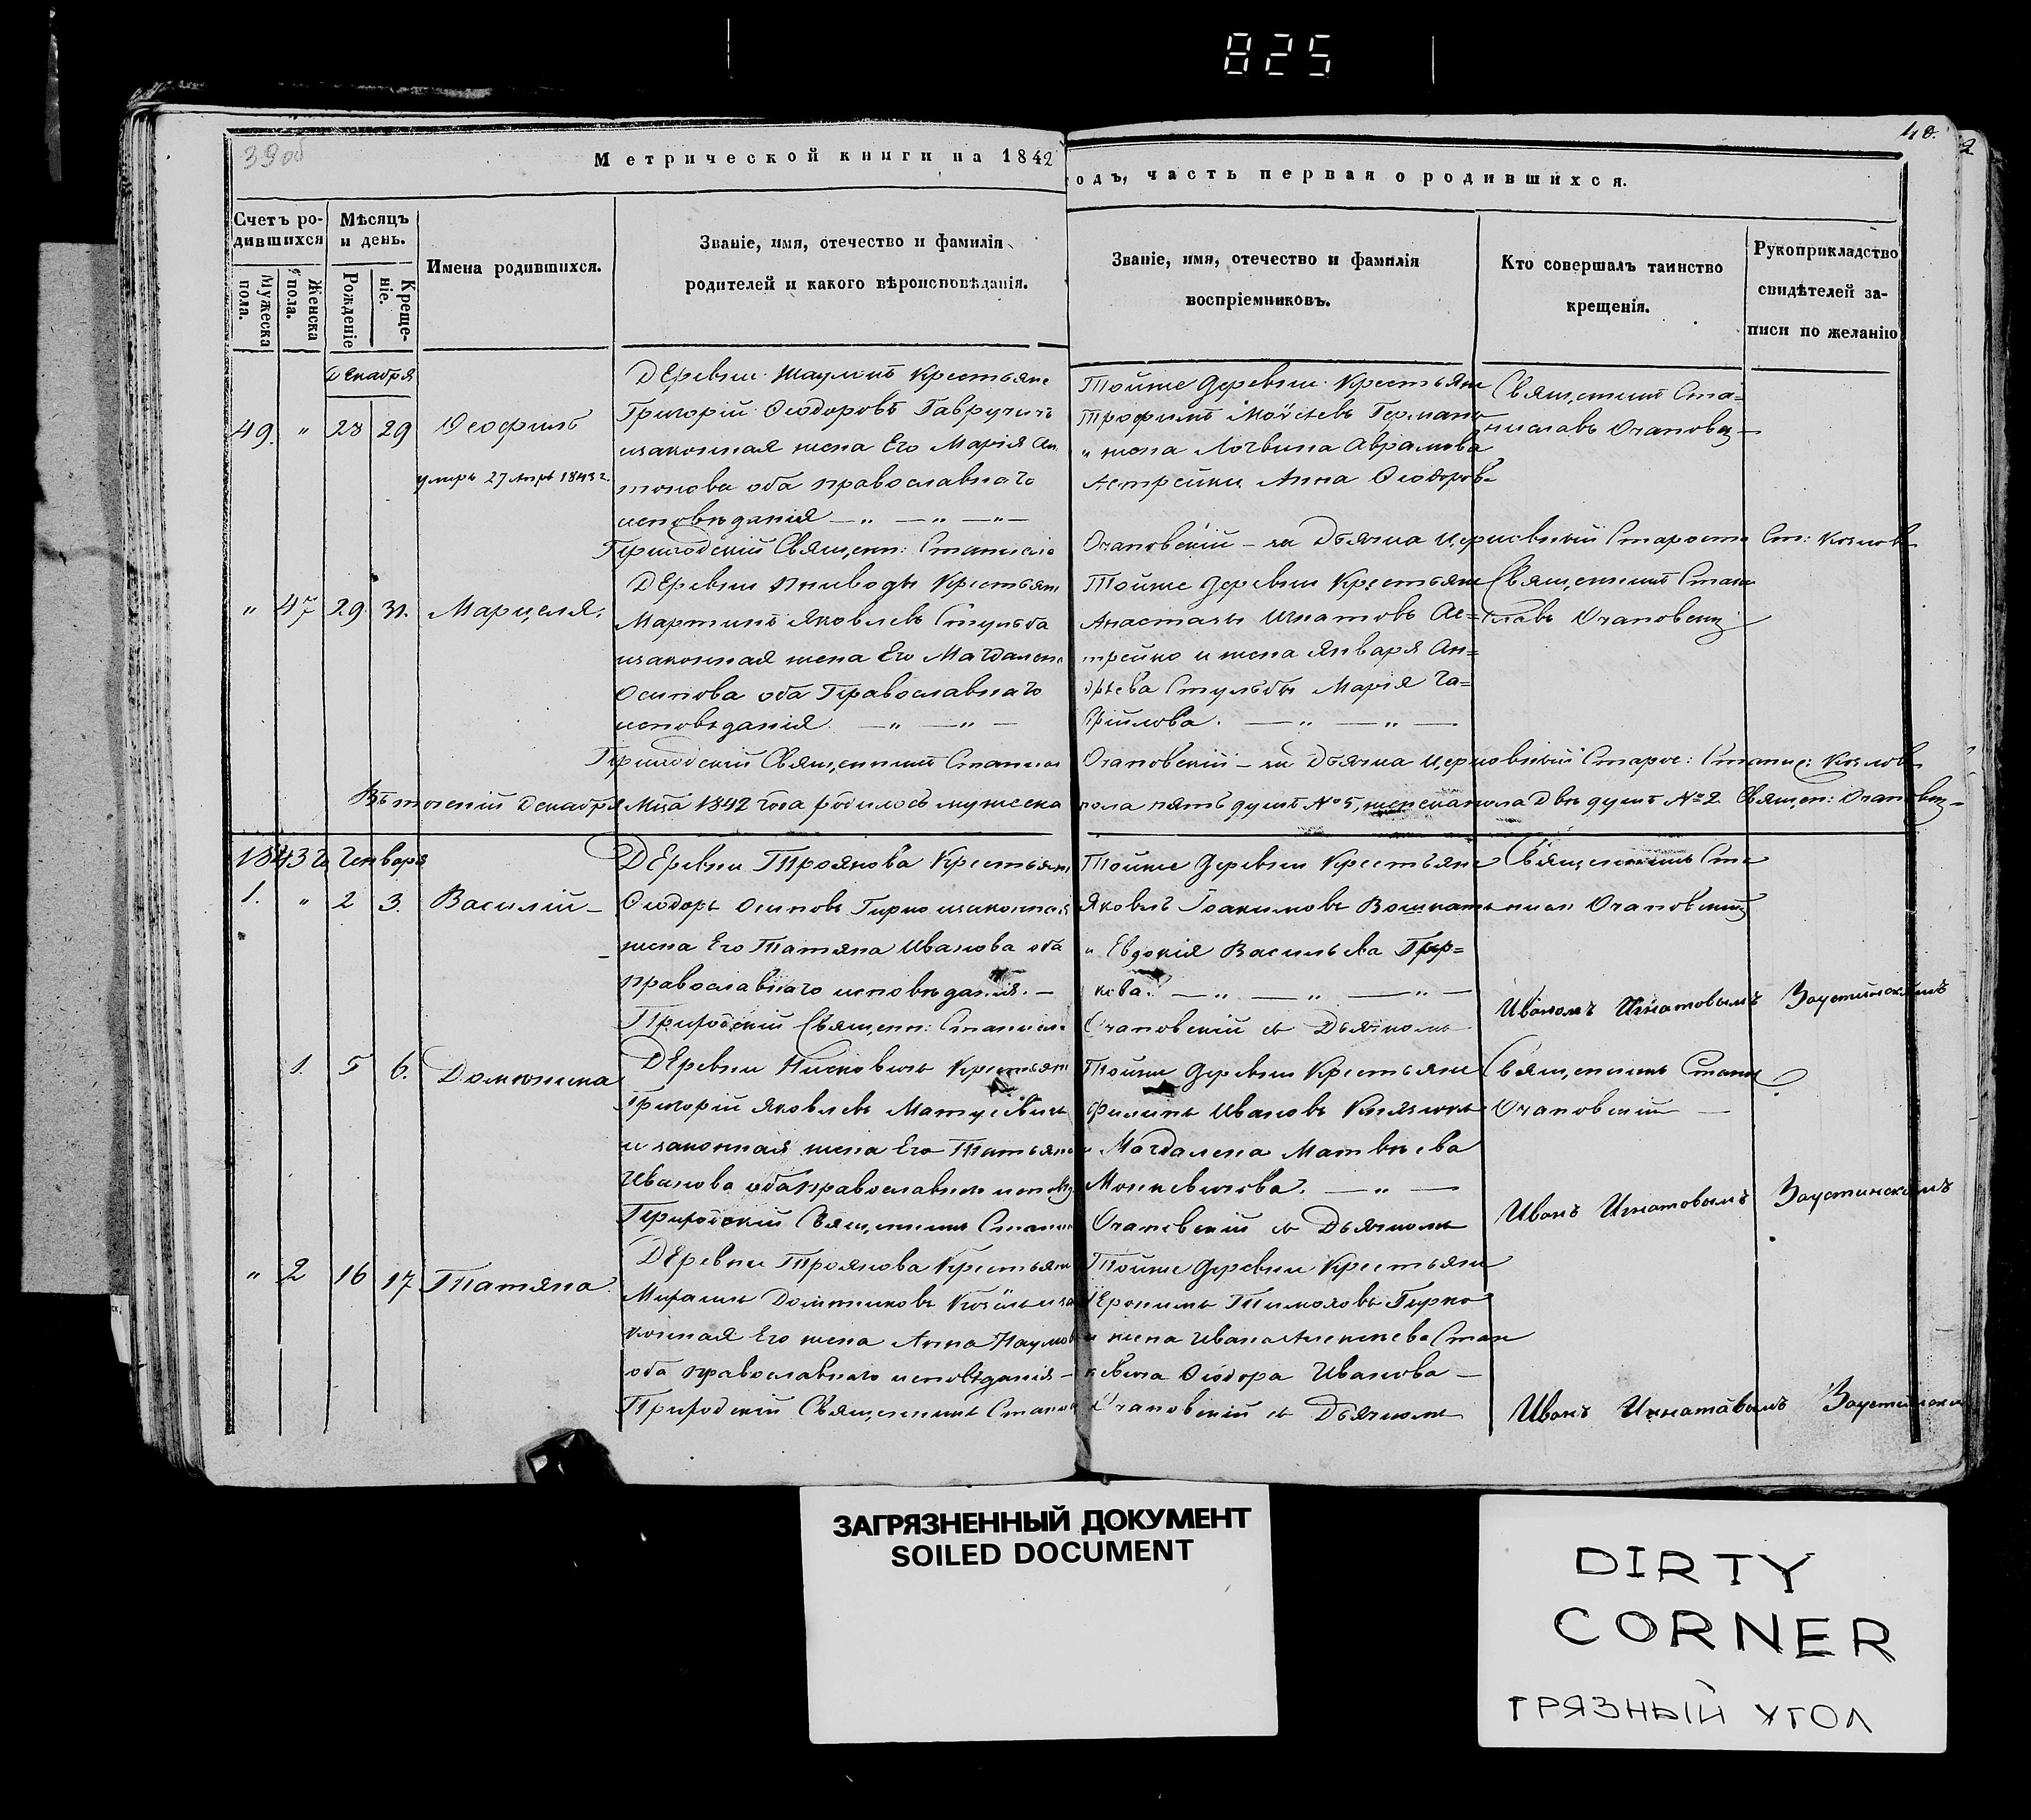 825
39об
40.
2
Метрической книги на 1842
одъ, часть первая о родившихся.
Счетъ ро-
дившихся
Мужеска
пола.
Женска
пола.
Мѣсяцъ
и день.
Рожденіе
Креще-
ніе.
Имена родившихся.
Званіе, имя, отечество и фамилія
родителей и какого вѣроисповѣданія.
Званіе, имя, отечество и фамилія
воспріемниковъ.
Кто совершалъ таинство
крещенія.
Рукоприкладство
свидѣтелей за-
писи по желанію
Декабря
49. " 28 29 Ѳеофилъ
умеръ 27 Апрѣ 1843 г.
Деревни Крестьяне
Григорій Ѳеодоровъ Гавручикъ
изаконная жена Его Марія Ан
тонова оба православнаго
исповѣданія — " — " — " —
Приходскій Священн: Станисла
Тойже деревни Крестьяне
Трофимъ Моѵсеевъ Германо
и жена Логвина Аврамова
Астрейки Анна Ѳеодоров
Очаповскій — за Дьячка Церковный Староста Ст: Козлов
Священникъ Ста=
ниславъ Очаповскі
" 47 29 31. Марцеля.
Деревни Крестьяне
Мартинъ Яковлевъ Стульба
изаконная жена Его Магдалена
Осипова оба Православнаго
исповѣданія. — " — " —
Приходскій Священникъ Станисл
Тойже деревни Крестьяне
Анастазы Игнатовъ Ас=
трейко и жена Января Ан=
дреева Стульбы Марія Га=
вріилова. — " — " —
Очаповскій — за Дьячка Церковный Старос: Станис: Козлов
Священникъ Стани
славъ Очаповскі
Въ теченій Декабря Мца 1842 года родилось мужеска
пола пять душъ № 5, женска пола двѣ душъ № 2. Священ: Очаповск
1843 г. Генваря
1. " 2 3. Василій —
Деревни Троянова Крестьяне
Ѳеодоръ Осиповъ Гирко изаконная
жена Его Татяна Иванова оба
православнаго исповѣданія. —
Приходскій Священн: Станисл
Тойже деревни Крестьяне
Яковъ Іоакимовъ
и Евдокія Васильева Гир=
кева. — " — " — " —
Очаповскій съ Дьячкомъ
Священникъ Ста
нисл Очаповскій
Иваномъ Игнатовымъ Заустинскимъ
1. 5 6. Доминика
Деревни Крестьяне
Григорій Яковлевъ Матусевичъ
и законная жена Его Татьяна
Иванова оба православнаго исповѣд
Приходскій Священникъ Станис
Тойже деревни Крестьяне
Филипъ Ивановъ
и Магдалена Матвѣева
Монкевичова. — " —
Очаповскій съ Дьячкомъ
Священникъ Стани
Очаповскій —
Иванъ Игнатовымъ Заустинскимъ
" 2 16 17 Татяна
Деревни Троянова Крестьяне
Михаилъ Доминиковъ иза
конная Его жена Анна Наумов
оба православнаго исповѣданія —
Приходскій Священникъ Станис
Тойже деревни Крестьяне
Іеронимъ Гирко
и жена Ивана Алексѣева Стан
кевича Ѳеодора Иванова —
Очаповскій съ Дьячкомъ
Иванъ Игнатовымъ Заустински
ЗАГРЯЗНЕННЫЙ ДОКУМЕНТ
SOILED DOCUMENT
DIRTY
CORNER
ГРЯЗНЫЙ УГОЛ